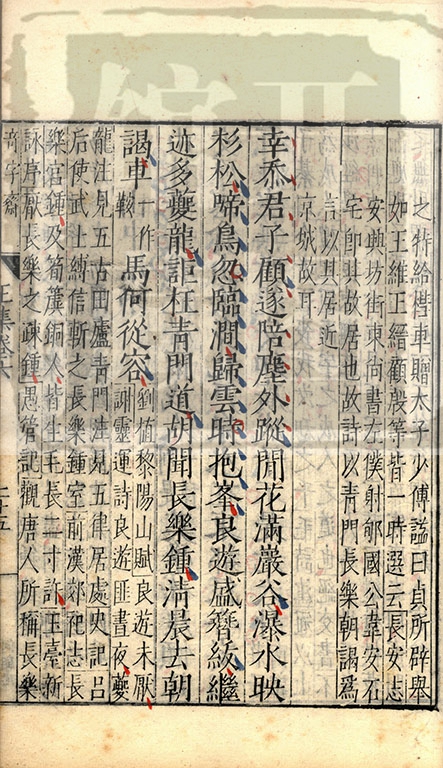 之特給檋車贈太子少傅謚曰貞所辟舉
如王維王縉顧殷等皆一時選云長安志
安興坊街東尚書左僕射郇國公韋安石
宅即其故居也故詩以青門長樂朝謁爲
言以其居近
京城故耳
幸忝君子顧遂陪塵外蹤閒花滿巖谷瀑水映
杉松啼鳥忽臨澗歸雲時抱峯良遊盛簪紱繼
迹多夔龍詎枉青門道胡聞長樂鍾清晨去朝
謁車一作鞍馬何從容劉楨黎陽山賦良遊未厭
謝靈運詩良遊匪晝夜夔
龍注見五古田廬青門注見五律居處史記呂
后使武士縛信斬之長樂鍾室前漢郊祀志長
樂宮鍾及筍簴銅人皆生毛長二寸許玉臺新
詠序厭長樂之疎鍾愚嘗記觀唐人所稱長樂
奇字齋
王集卷六
二十五